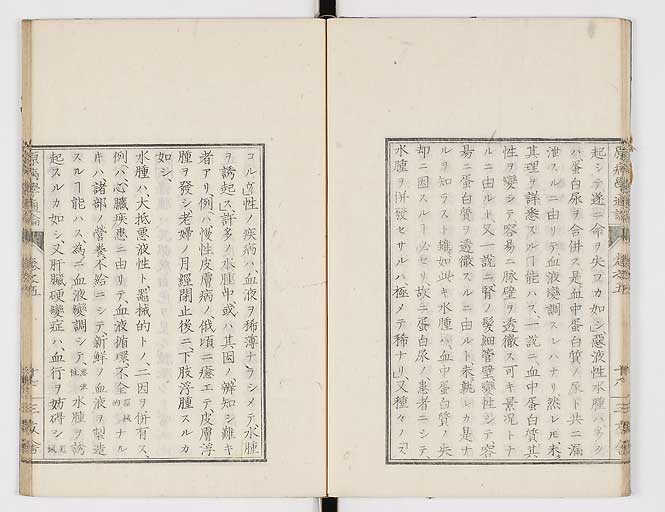 起シテ遂ニ命ヲ失フカ如シ、惡液性水腫ハ、多ク
ハ蛋白尿ヲ合併ス、是血中蛋白質ノ、尿ト共ニ漏
泄スルニ由リテ、血液變調スレハナリ、然レ𪜈未タ
其理ヲ詳悉スルヿ能ハス、一說ニ、血中蛋白質、其
性ヲ變シテ、容易ニ脉壁ヲ透徹ス可キ景況トナ
ルニ由ルト、又一說ニ、腎ノ髮細管壁變性シテ、容
易ニ蛋白質ヲ透徹スルニ由ルト、未タ孰レカ是ナ
ルヲ知ラスト雖𪜈、如此キ水腫ハ、血中蛋白質ノ失
却ニ因スルヿ必セリ、故ニ蛋白尿ノ患者ニシテ、
水腫ヲ併發セサルハ、極メテ稀ナリ、又種々ノ「ス
コル」性ノ疾病ハ、血液ヲ稀薄ナラシメテ、水腫
ヲ誘起ス、許多ノ水腫中、或ハ其因ノ辨知シ難キ
者アリ、例ハ慢性皮膚病ノ、俄頃ニ癒エテ、皮膚浮
腫ヲ發シ、老婦ノ月經閉止後ニ、下肢浮腫スルカ
如シ、
水腫ハ、大抵惡液性ト、噐械的トノ、二因ヲ併有ス、
例ハ心臓疾患ニ由リテ、血液循環、不全噐械的ナル
𪜈ハ、諸部ノ營養不給ニシテ、新鮮ノ血液ヲ製造
スルヿ能ハス、為ニ血液變調シテ、惡液性水腫ヲ誘
起スルカ如シ、又肝臓硬變症ハ、血行ヲ妨碍シ噐械
原病學通論
卷之五
三友舍
原病學通論
卷之五
三友舍